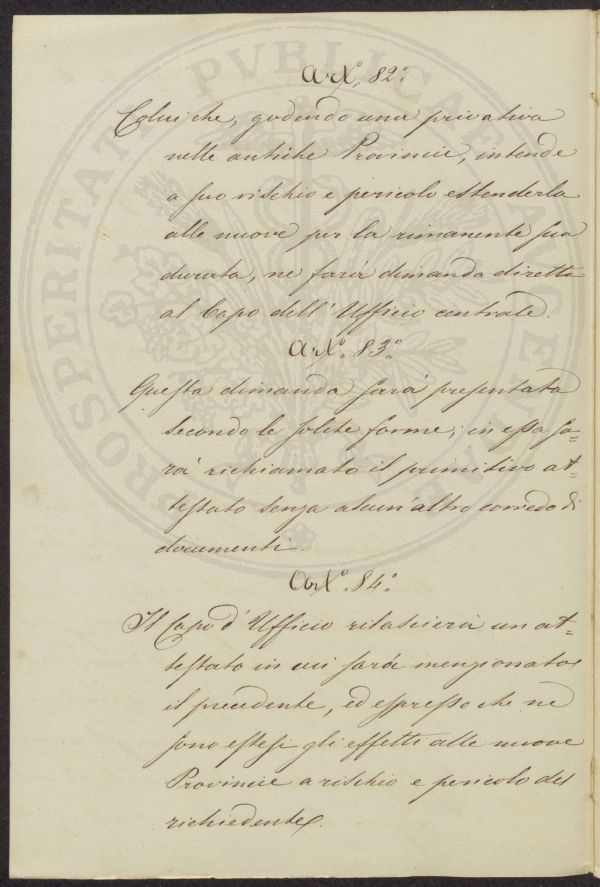 Art.° 82.°
Colui che, godendo una privativa
nelle antiche Provincie, intende
a suo rischio e pericolo estenderla
alle nuove per la rimanente sua
durata, ne farà dimanda diretta
al Capo dell'Ufficio centrale.
Art.° 83.°
Questa dimanda sarà presentata
secondo le solite forme; in essa sa=
rà richiamato il primitivo at=
testato senza alcun'altro corredo di
documenti.
Art.° 84.°
Il Capo d'Ufficio rilascierà un at=
testato in cui sarà menzionato
il precedente, ed espresso che ne
sono estesi gli effetti alle nuove
Provincie a rischio e pericolo del
richiedente.
PROSPERITATI PVBLICAE AVGENDAE